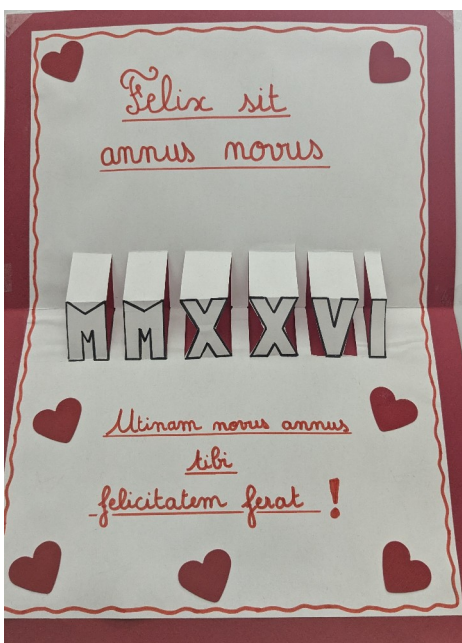 Felix sit
annus novus
MMXXVI
Utinam novus annus
tibi
felicitatem ferat !